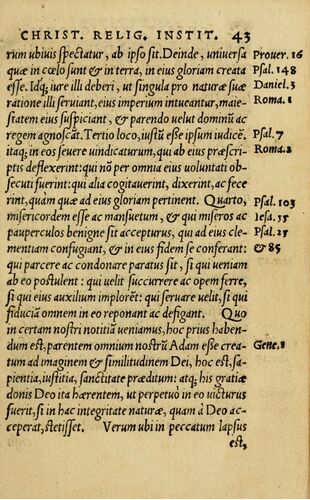 CHRIST. RELIG. INSTIT. 43
rum ubiuis spectatur, ab ipso sit. Deinde, uniuersa Prouer. 16
quæ in cœlo sunt & in terra, in eius gloriam creata Psal. 148
esse. Idq; iure illi deberi, ut singula pro naturæ suæ Daniel. 3
ratione illi seruiant, eius imperium intueantur, maie- Roma. 1
statem eius suspiciant, & parendo uelut dominū ac
regem agnoscāt. Tertio loco, iustū esse ipsum iudicē. Psal. 7
itaq; in eos seuere uindicaturum, qui ab eius præscri- Roma. 2
ptis deflexerint: qui nō per omnia eius uoluntati ob-
secuti fuerint: qui alia cogitauerint, dixerint, ac fece
rint, quàm quæ ad eius gloriam pertinent. Quarto, Psal. 103
misericordem esse ac mansuetum, & qui miseros ac Iesa. 55
pauperculos benigne sit accepturus, qui ad eius cle- Psal. 25
mentiam confugiant, & in eius fidem se conferant: & 85
qui parcere ac condonare paratus sit, si qui ueniam
ab eo postulent: qui uelit succurrere ac opem ferre,
si qui eius auxilium implorēt: qui seruare uelit, si qui
fiduciā omnem in eo reponant ac defigant. Quo
in certam nostri notitiā ueniamus, hoc prius haben-
dum est, parentem omnium nostrū Adam esse crea- Gene. 1
tum ad imaginem & similitudinem Dei, hoc est, sa-
pientia, iustitia, sanctitate præditum: atq; his gratiæ
donis Deo ita hærentem, ut perpetuò in eo uicturus
fuerit, si in hac integritate naturæ, quam à Deo ac-
ceperat, stetisset. Verum ubi in peccatum lapsus
est,